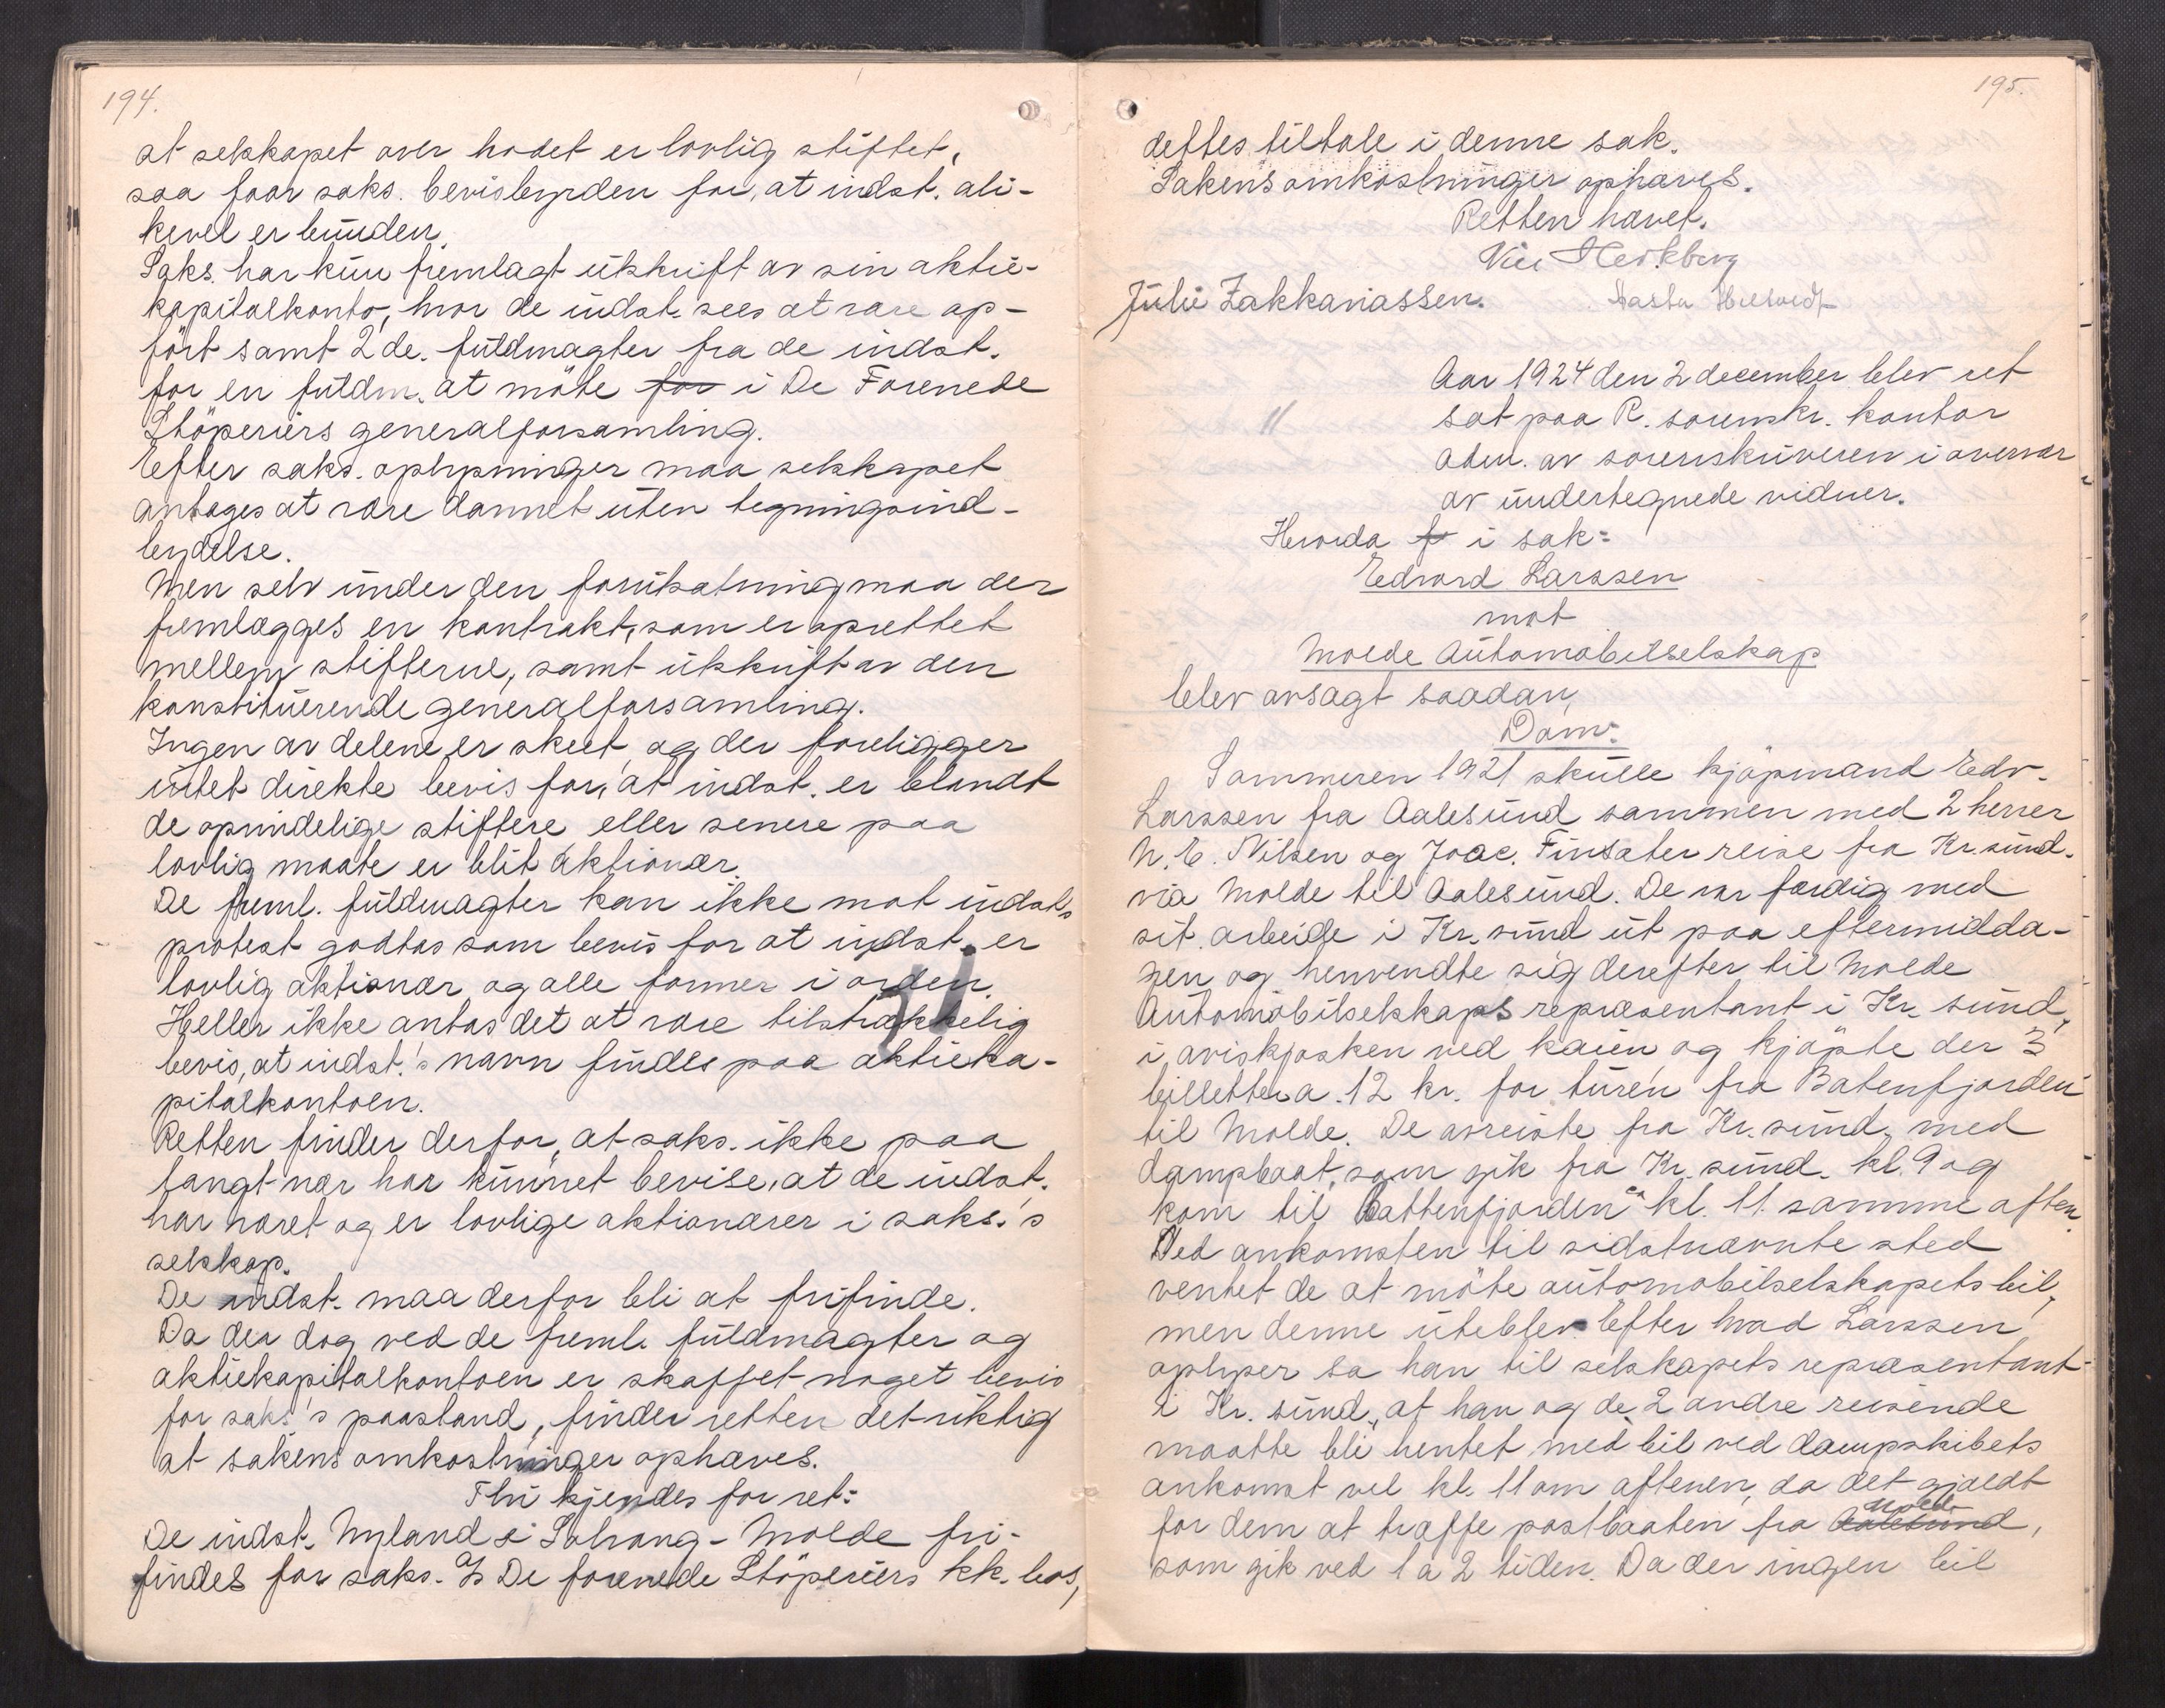 194.
at selskapet over hodet er lovlig stiftet,
saa faar saks. bevisbyrden for, at indst. ali-
kevel er bunden.
Saks. har kun fremlagt utskrift av sin aktie-
kapitalkonto, hvor de indst. sees at være op-
ført samt 2 de. fuldmagter fra de indst.
for en fuldm. at møte for i De Forenede
Støperiers generalforsamling.
Efter saks. oplysninger maa selskapet
antages at være dannet uten tegningsind-
bydelse.
Men selv under den forutsætning maa der
fremlægges en kontrakt, som er oprettet
mellem stifterne, samt utskrift av den
konstituerende generalforsamling.
Ingen av delene er skeet, og der foreligger
intet direkte bevis for, at indst. er blandt
de oprindelige stiftere eller senere paa
lovlig maate er blit aktionær.
De freml. fuldmagter kan ikke mot indst.s
protest godtas som bevis for at indst. er
lovlig aktionær og alle former i orden.
Heller ikke antas det at være tilstrækkelig
bevis, at indst.'s navn findes paa aktieka-
pitalkontoen.
Retten finder derfor, at saks. ikke paa
langt nær har kunnet bevise, at de indst.
har været og er lovlige aktionærer i saks.'s
selskap.
De indst. maa derfor bli at frifinde.
Da der dog ved de freml. fuldmagter og
aktiekapitalkontoen er skaffet noget bevis
for saks.'s paastand, finder retten det riktig
at sakens omkostninger ophæves.
Thi kjendes for ret:
De indst. Nyland & Solvang - Molde fri-
findes for saks. A/S De forenede Støperiers kk. bos,
195.
dettes tiltale i denne sak.
Sakens omkostninger ophæves.
Retten hævet.
Julie Zakkariassen.
Aar 1924 den 2 december blev ret
sat paa R. sorenskr. kontor
adm. av sorenskriveren i overvær
av undertegnede vidner.
Hvorda f i sak:
Edvard Larssen
mot
Molde Automobilselskap
blev avsagt saadan
Dom:
Sommeren 1921 skulle kjøpmand Edv.
Larssen fra Aalesund sammen med 2 herrer
N. E. Nilsen og Joac. Finsæter reise fra Kr.sund.
via Molde til Aalesund. De var færdig med
sit arbeide i Kr.sund ut paa eftermidda-
gen og henvendte sig derefter til Molde
Automobilselskaps repræsentant i Kr. sund,
i aviskjosken ved kaien og kjøpte der 3
billetter a. 12 kr. for turen fra Batenfjorden
til Molde. De avreiste fra Kr. sund. med
dampbaat, som gik fra Kr. sund. kl. 9 og
kom til Battenfjorden ca kl. 11. samme aften.
Ved ankomsten til sidstnævnte sted
ventet de at møte automobilselskapets bil,
men denne uteblev. Efter hvad Larssen
oplyser sa han til selskapets repræsentant
i Kr. sund., at han og de 2 andre reisende
maatte bli hentet med bil ved dampskibets
ankomst vel kl. 11 om aftenen, da det gjældt
for dem at træffe postbaaten fra Aalesund Molde,
som gik ved 1 a 2 tiden. Da der ingen bil